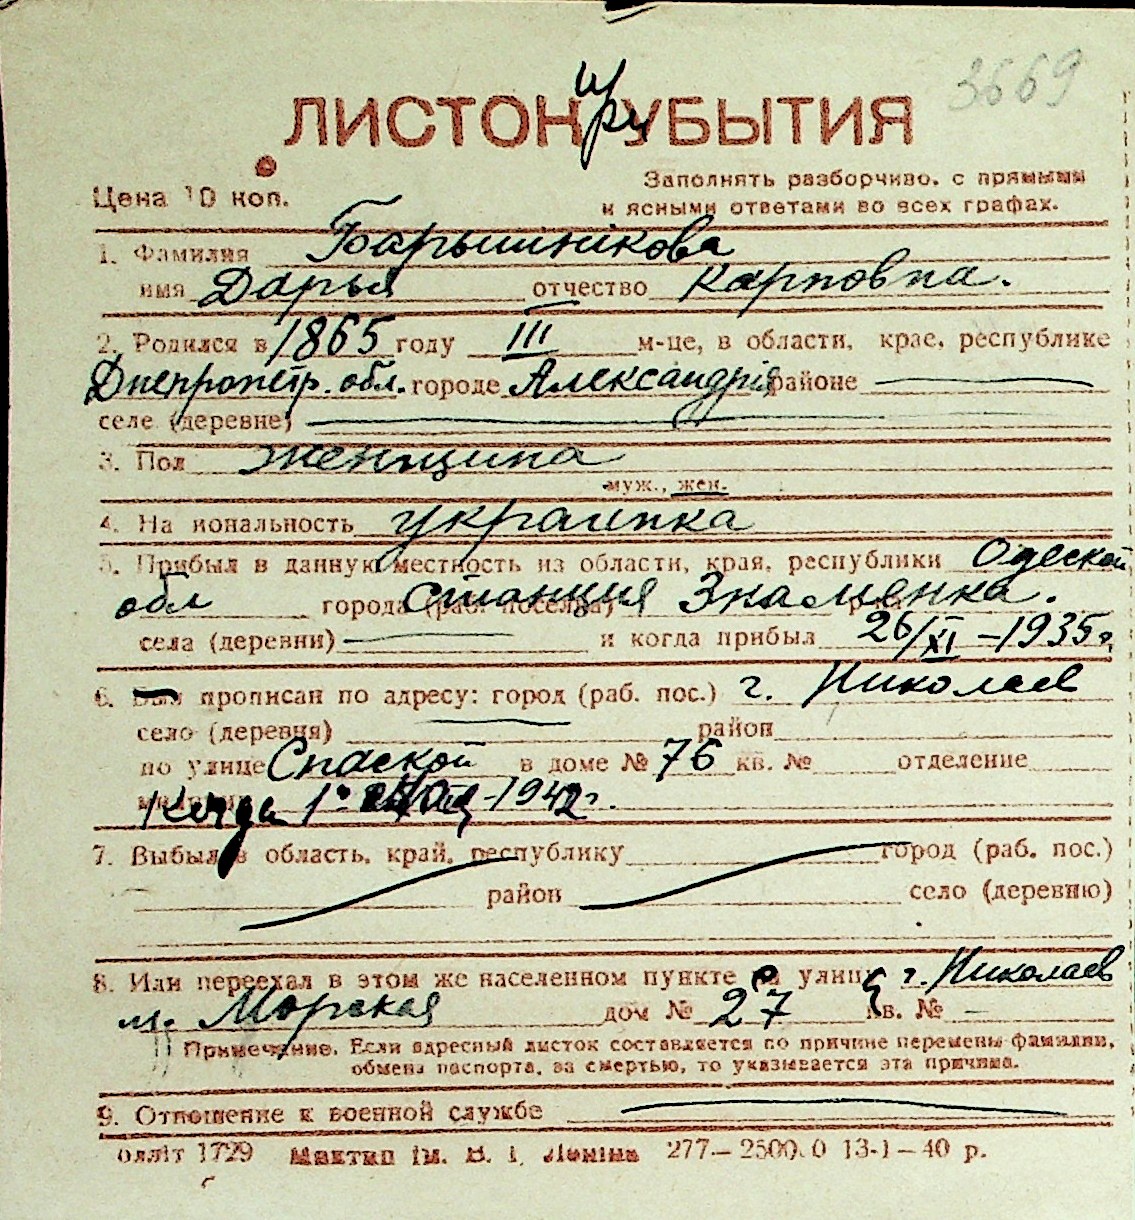 3669
ЛИСТОК при УБЫТИЯ
Цена 10 коп.
Заполнять разборчиво, с прямыми
и ясными ответами во всех графах.
1. Фамилия Барышнікова
имя Дарья отчество Карповна.
2. Родился в 1865 году III м-це, в области, крае, республике
Днепропетр. обл. городе Александрія районе
селе (деревне)
3. Пол женщина
муж., жен.
4. Национальность украинка
5. Прибыл в данную местность из области, края, республики Одеской
обл города (раб. поселка) станция Знаменка.
села (деревни) и когда прибыл 26/XI – 1935 г.
6. Был прописан по адресу: город (раб. пос.) г. Николаев
село (деревня) район
по улице Спаской в доме № 76 кв. № отделение
милиции 1942 г.
7. Выбыл в область, край, республику город (раб. пос.)
район село (деревню)
8. Или переехал в этом же населенном пункте на улицу г. Николаев
Морская дом № 27 кв. № –
Примечание. Если адресный листок составляется по причине перемены фамилии,
обмена паспорта, за смертью, то указывается эта причина.
9. Отношение к военной службе
оллiт 1729 Миктип iм. В. I. Ленiна 277 – 2500.0 13-1 – 40 р.